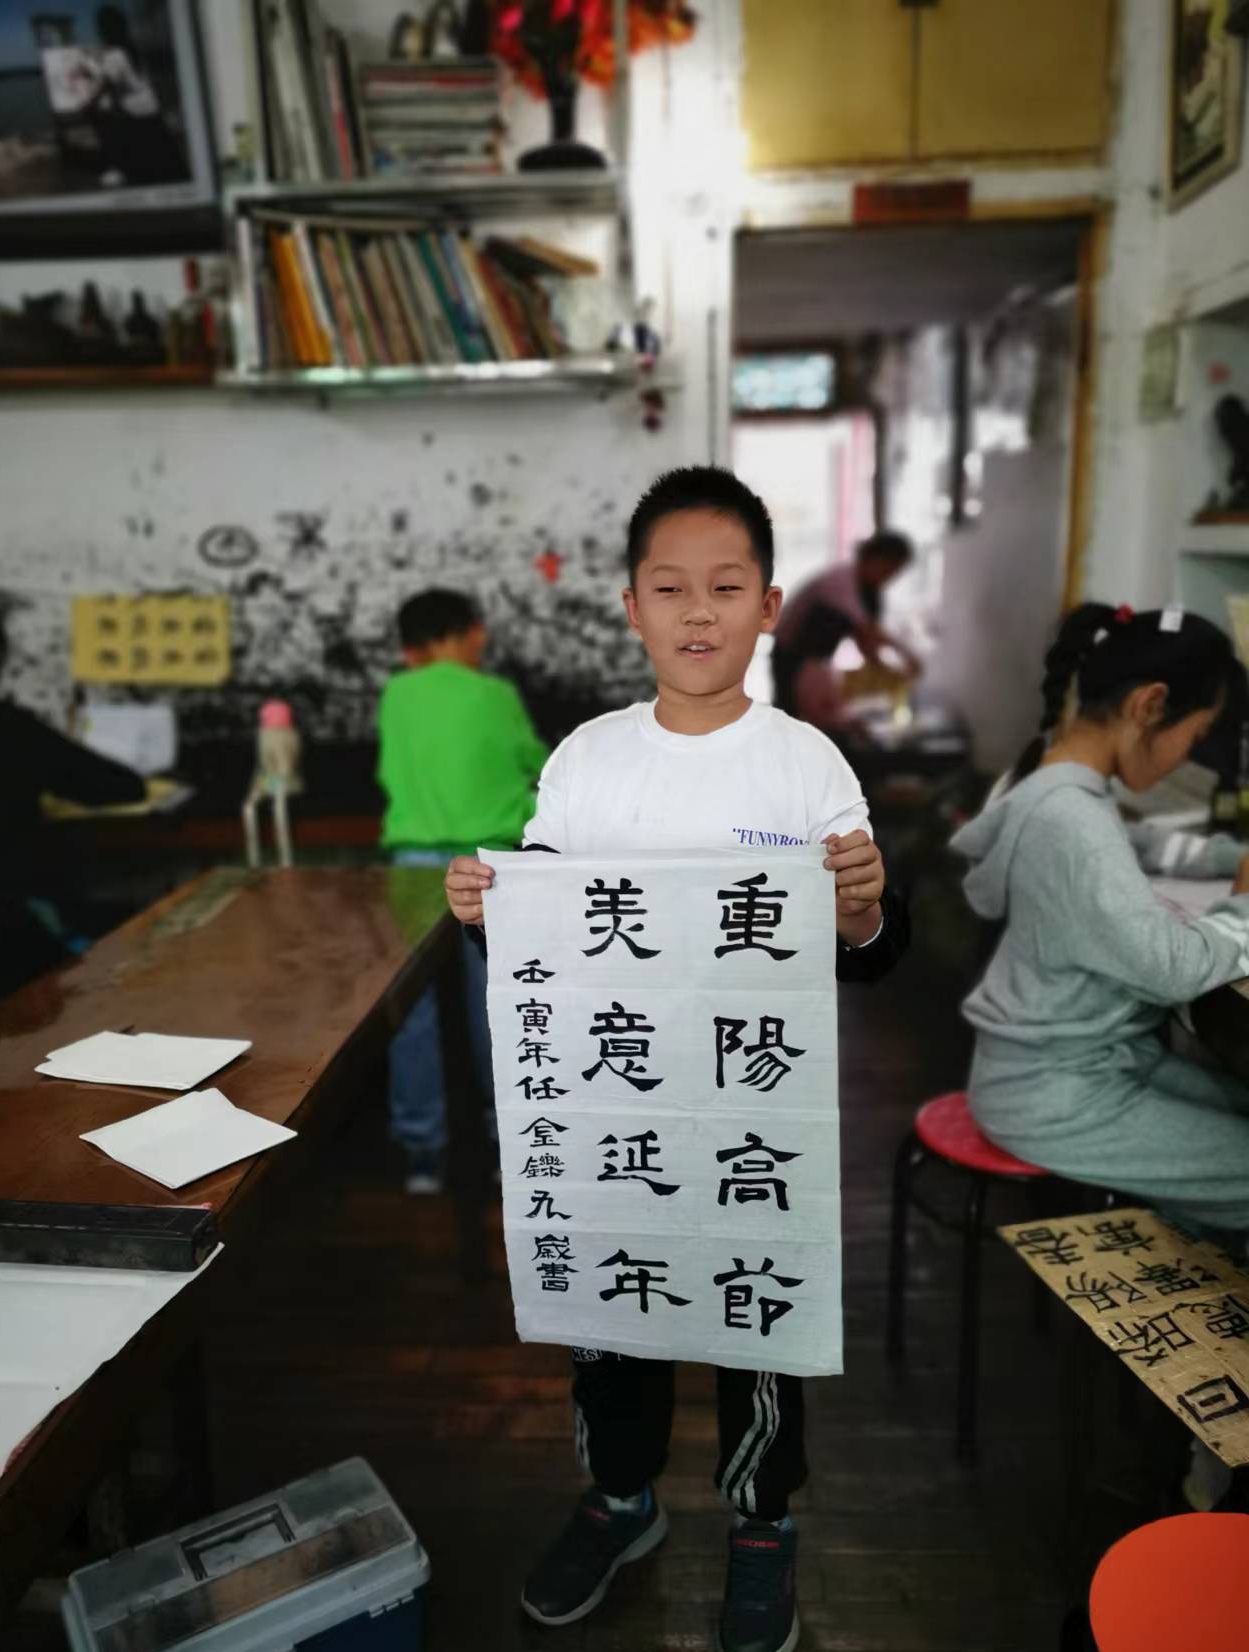 重陽高節
美意延年
壬寅年任金鑠九歲書
"FUNNYBOY